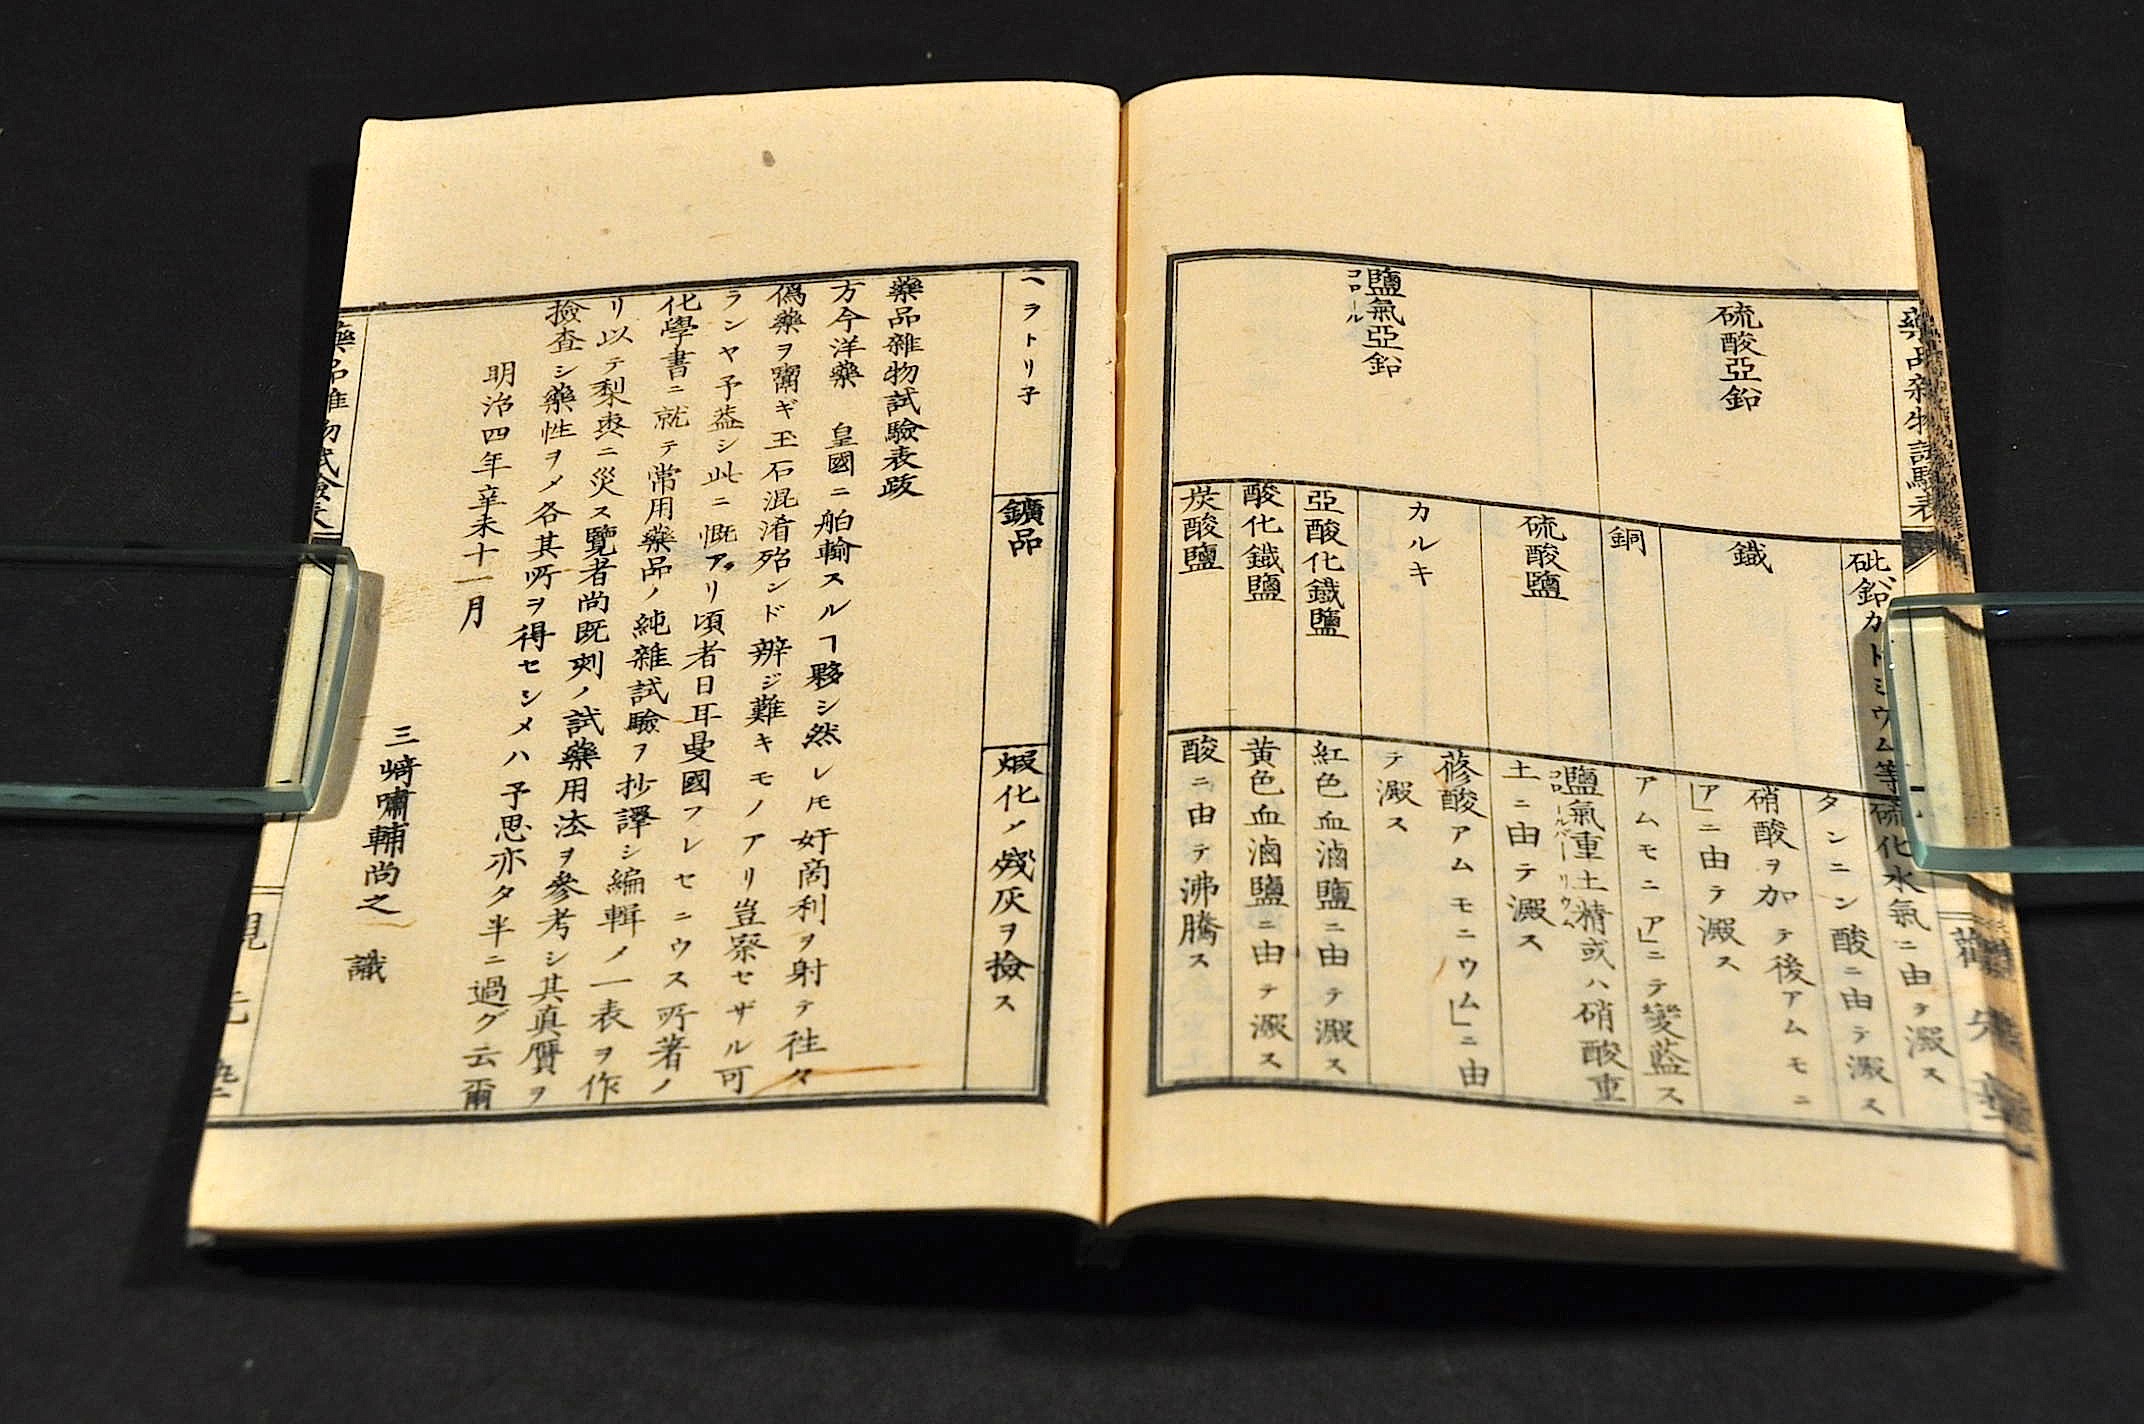 藥品雜物試驗表
砒、鉛カトミウム等
硫化水氣ニ由テ澱ス
硫酸亞鉛
鐵
タンニン酸ニ由テ澱ス
硝酸ヲ加テ後アムモニ
ア」ニ由テ澱ス
銅
アムモニア」ニテ變藍ス
鹽氣亞鉛
コロール
硫酸鹽
鹽氣重土精或ハ硝酸重
コロールバーリウム
土ニ由テ澱ス
カルキ
蓚酸アムモニウム」ニ由
テ澱ス
亞酸化鐵鹽
紅色血滷鹽ニ由テ澱ス
酸化鐵鹽
黄色血滷鹽ニ由テ澱ス
炭酸鹽
酸ニ由テ沸騰ス
ヘラトリ子
鑛品
煆化ノ殘灰ヲ撿ス
藥品雜物試驗表跋
方今洋藥 皇國ニ舶輸スルヿ夥シ然レ𪜈奸商利ヲ射テ徃々
僞藥ヲ鬻ギ玉石混淆殆ンド辨ジ難キモノアリ豈察セザル可
ランヤ予葢シ此ニ慨アリ頃者日耳曼國フレセニウス所著ノ
化學書ニ就テ常用藥品ノ純雜試驗ヲ抄譯シ編輯ノ一表ヲ作
リ以テ梨棗ニ災ス覽者尚既刻ノ試藥用法ヲ參考シ其真贋ヲ
撿査シ藥性ヲメ各其所ヲ得セシメハ予思亦タ半ニ過グ云爾
明治四年辛未十一月
三﨑嘯輔尚之 識
藥品雜物試驗表